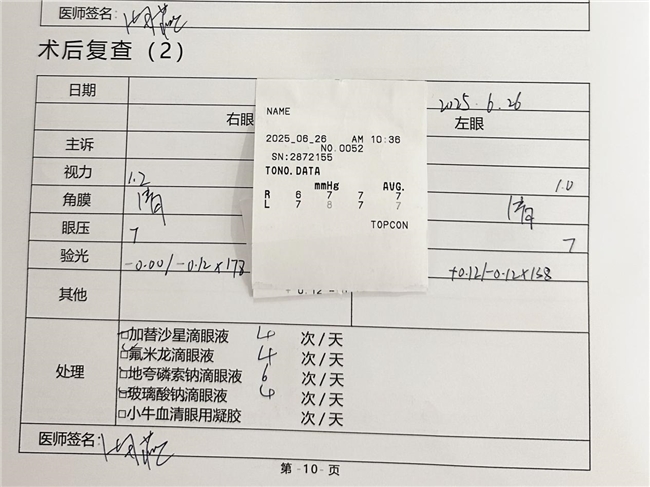 医师签名:
术后复查（2）
日期 2025.6.26
右眼 左眼
主诉
视力 1.2 1.0
角膜 清 清
眼压 7 7
验光 -0.00/-0.12×173 +0.12/-0.12×158
其他
NAME
2025_06_26 AM 10:36
NO.0052
SN:2872155
TONO.DATA
mmHg AVG.
R 6 7 7 7
L 7 8 7 7
TOPCON
处理
□加替沙星滴眼液 4 次/天
□氟米龙滴眼液 4 次/天
□地夸磷索钠滴眼液 6 次/天
□玻璃酸钠滴眼液 4 次/天
□小牛血清眼用凝胶 次/天
医师签名:
第 -10- 页